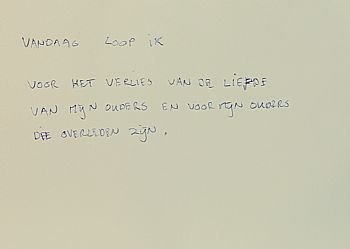 VANDAAG LOOP IK
VOOR HET VERLIES VAN DE LIEFDE
VAN MIJN OUDERS EN VOOR MIJN OUDERS
DIE OVERLEDEN ZIJN.